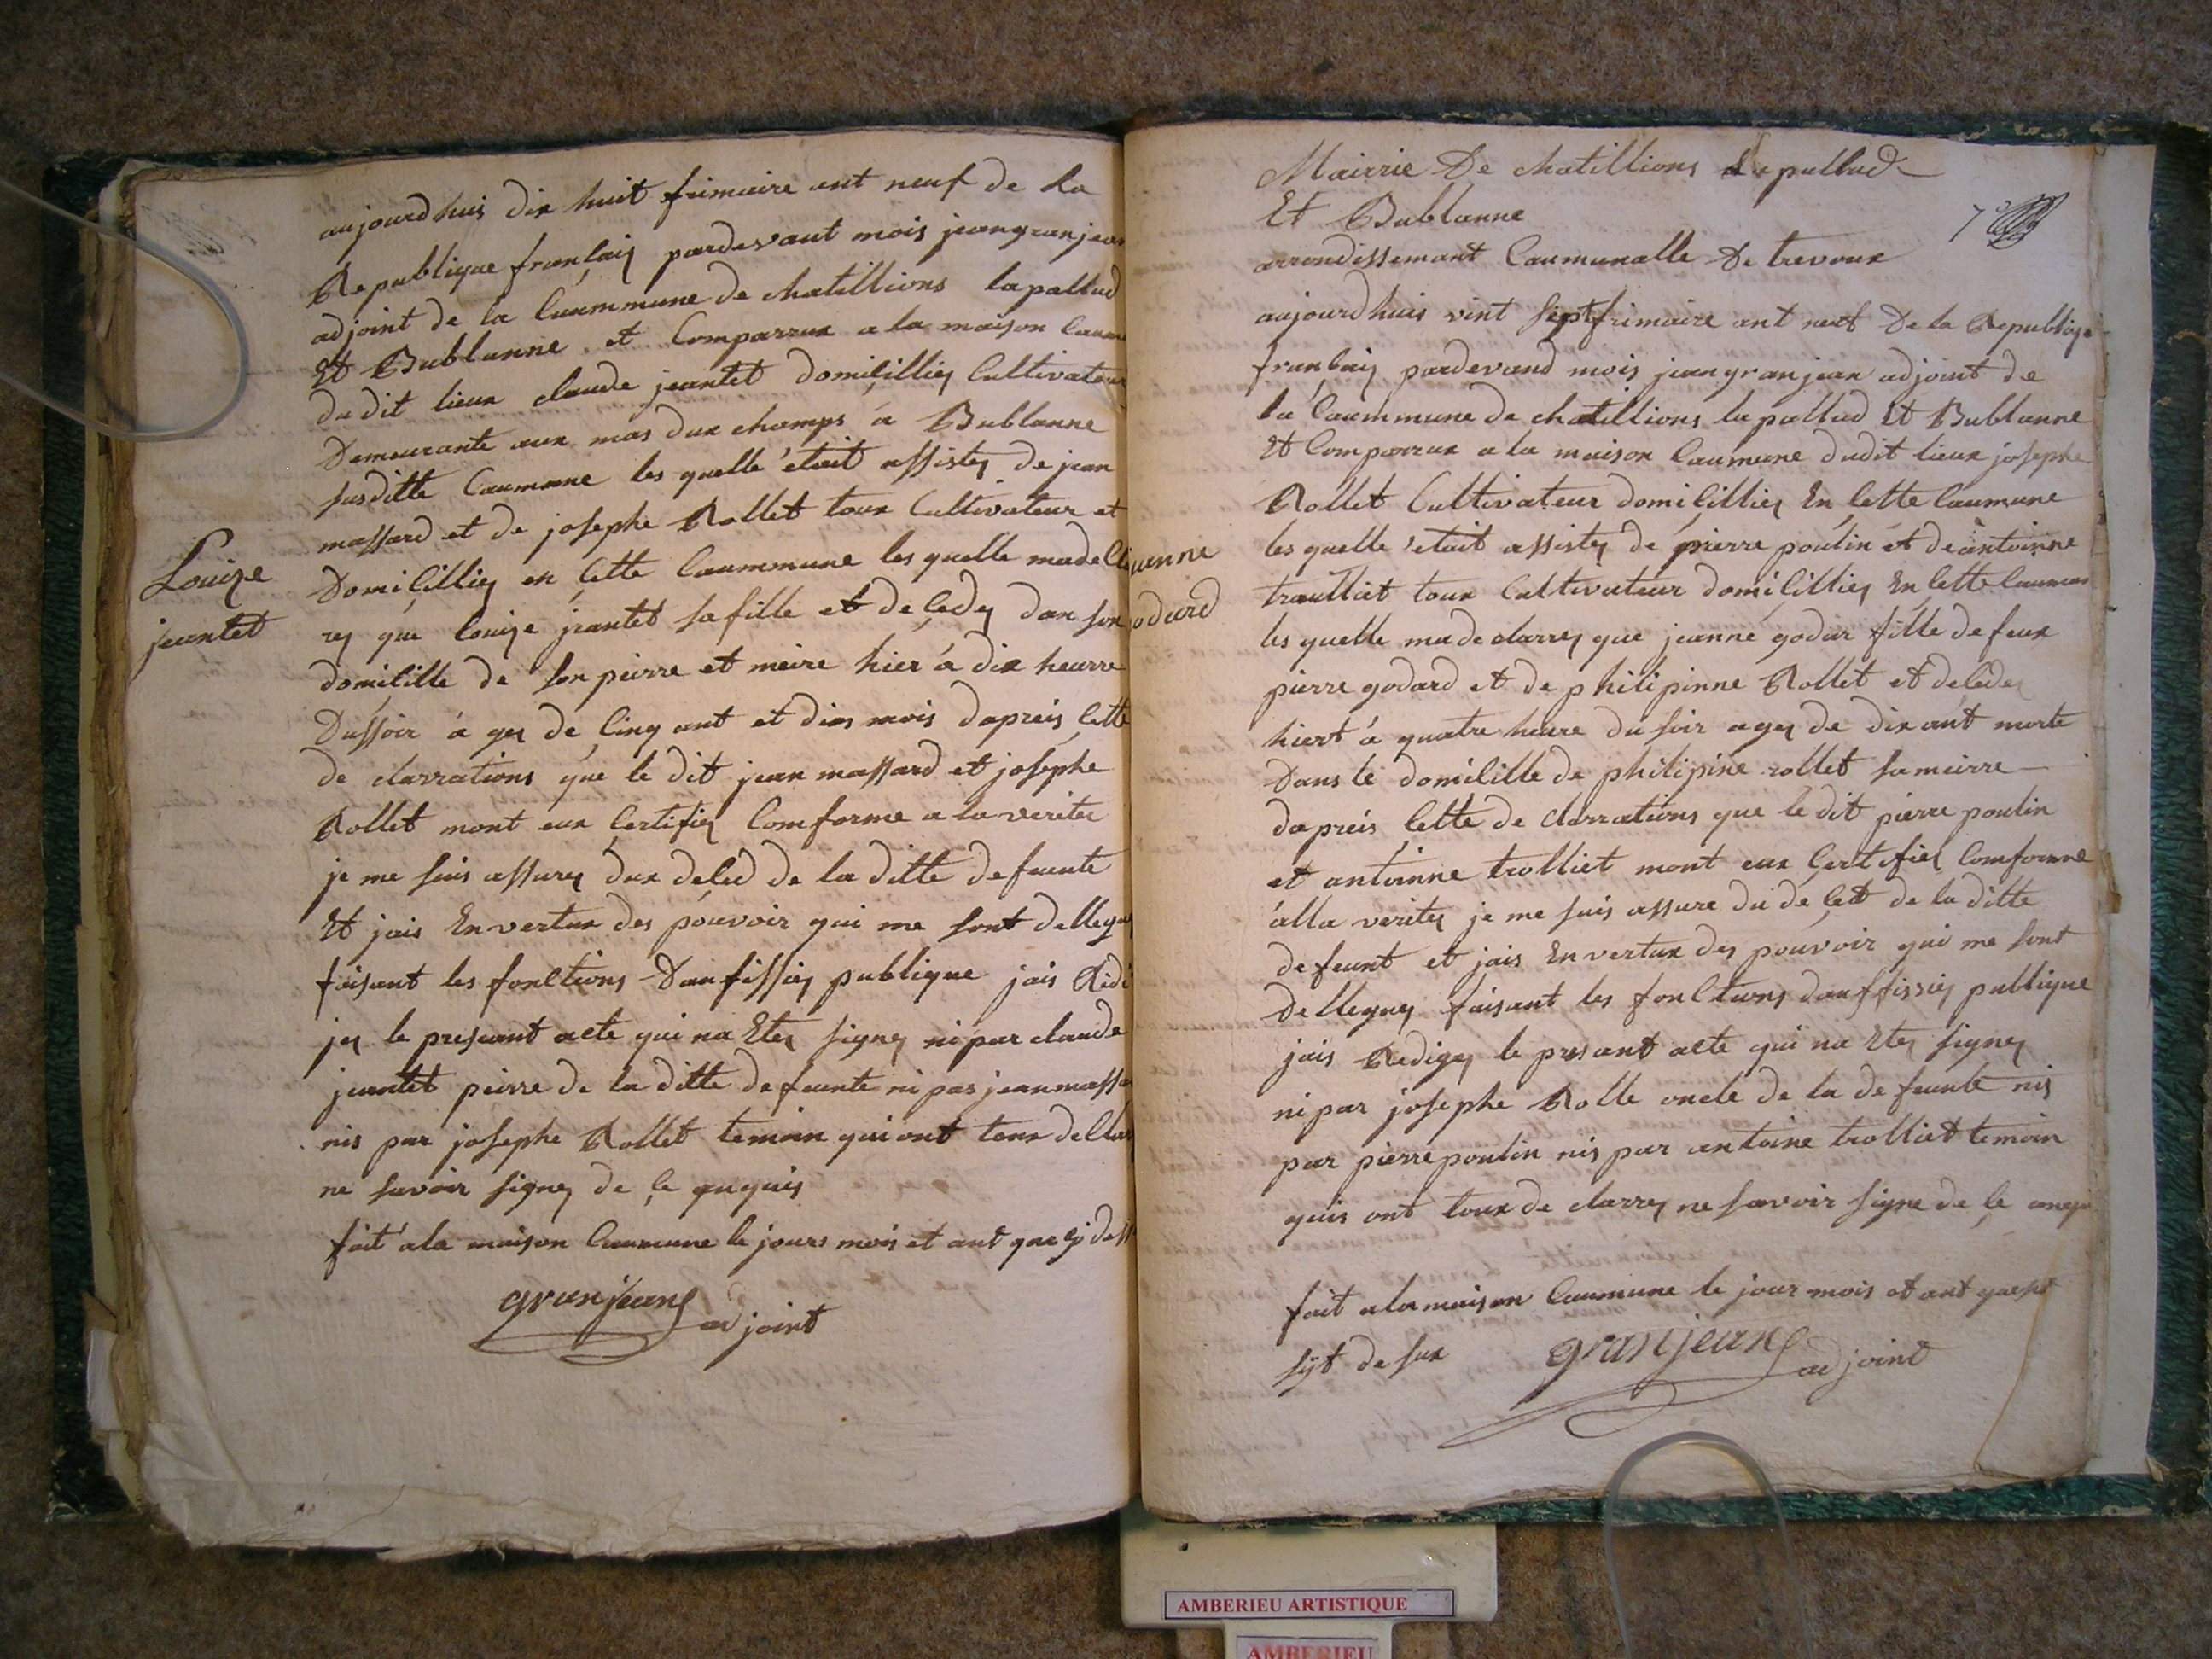 aujourdhuis dix huit frimaire ant neuf de la
Republique françaiy pardevant mois jeangranjean
adjoint de la Caummune de chatillions lapallud
Et Bublanne et Comparrux a la maison
dudit lieux claude jeantet domiçilliey Cultivateur
Demeurante aux mas dux champs á Bublanne
susditte Caumune les quelle était assistey de jean
massard et de josephe Rollet toux Cultivateur et
Domiçilliey en çette Caummune les quelle madecl
Louize
jeantet
rey que louize jeantet sa fille et de çedey dan son
domiçille de son peirre et meire hier á dix heurre
Dussoir á gey de çinq ant et dias mois dapreis çette
de clarrations que le dit jean massard et josephe
Rollet mont eux Çertifiey Comforme a la veritey
je me suis assurey dux deçed de la ditte defuente
Et jais En vertux des pouvoir qui me sont dellegu
faisant les fonctions Daufissiey publique jais Redi
jey le presant acte qui na Etey signey ni par claude
jeantet peirre de la ditte defuente ni pas jean massa
nis par josephe Rollet temoin qui ont toux declar
ne savoir signey de çe
fait a la maison Caumune le jours mois et ant que çi dess
granjean adjoint
Mairrie De chatillions Lapallud
Et Bublanne
7
arrondissemant Caumunalle De trevoux
aujourdhuis vint sept frimaire ant neuf De la Republique
françaiy pardevand mois jeangranjean adjoint de
la Caummune de chatillions la pallud Et Bublanne
Et Comparrux a la maison Caumune dudit lieux josephe
Rollet Cultivateur domiçilliey En çette Caumune
les quelle était assistey de pierre poulin et de antoinne
anne
odard
traulliet toux Cultivateur domiçilliey En çette Caumun
les quelle ma de clarrey que jeanne godar fille de feux
pierre godard et de philipinne Rollet et deçedey
hiert á quatre heure du soir agey de dix ant morte
Dans le domiçille de philipine rollet sa meirre
dapreis Cette de clarrations que le dit pierre poulin
et antoinne trolliet mont eux Çertifiey Comforme
álla veritey je me suis assure du deçed de la ditte
defeunt et jais En vertux dey pouvoir qui me sont
Delleguey faisant les fonctions dauffissiey publique
jais Redigey le presant acte qui na Etey signey
ni par josephe Rolle oncle de la defeunte nis
par pierre poulin nis par antoine trolliet temoin
quis ont toux de clarrey ne savoir signe de çe
fait a la maison Caumune le jour mois et ant que
syt desux granjean adjoint
AMBERIEU ARTISTIQUE
AMBERIEU